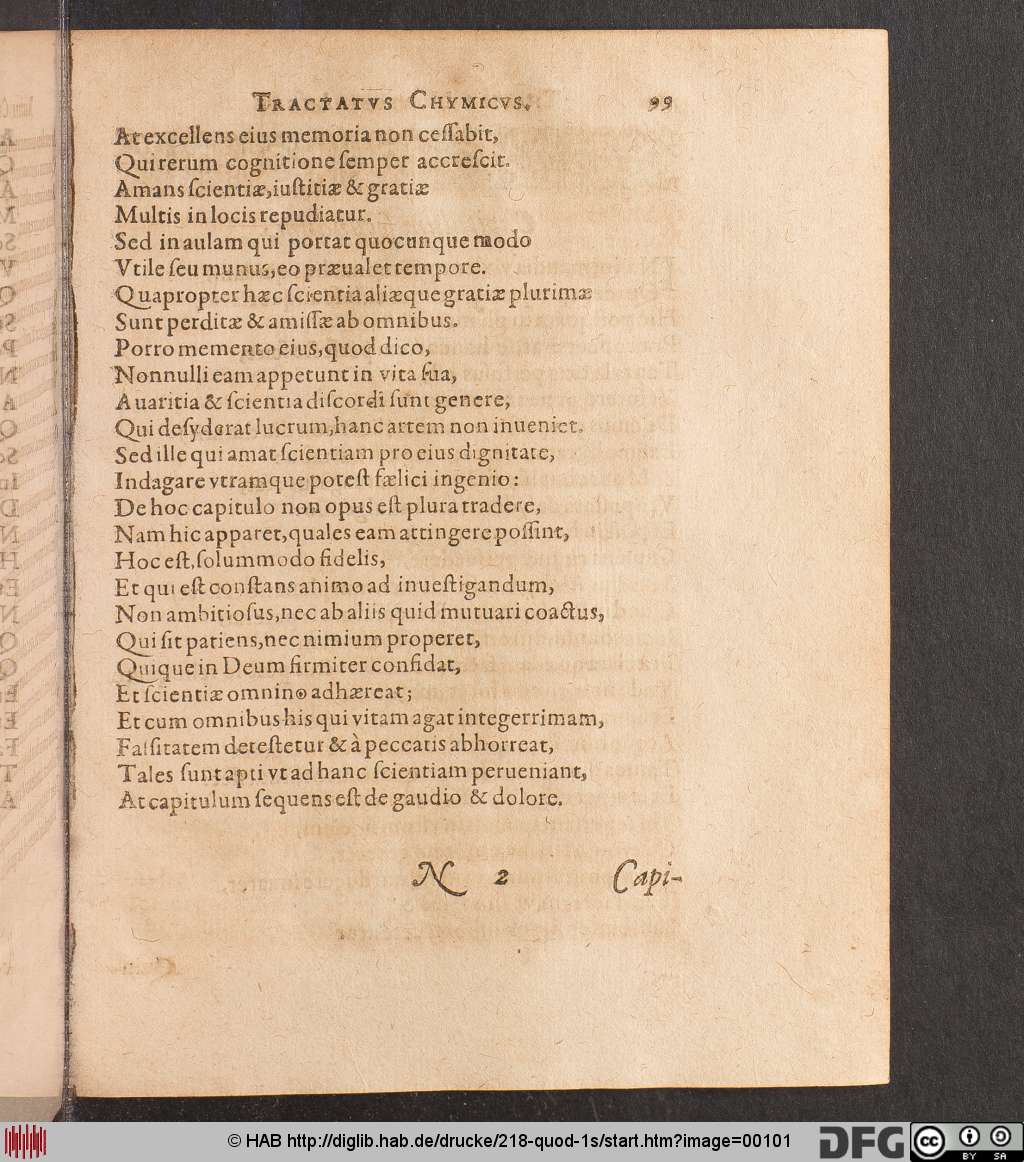 TRACTATVS CHYMICVS. 99
At excellens eius memoria non ceſſabit,
Qui rerum cognitione ſemper accreſcit.
Amans ſcientiæ, iuſtitiæ & gratiæ
Multis in locis repudiatur.
Sed in aulam qui portat quocunque modo
Vtile ſeu munus, eo præualet tempore.
Quapropter hæc ſcientia aliæque gratiæ plurimæ
Sunt perditæ & amiſſæ ab omnibus.
Porro memento eius, quod dico,
Nonnulli eam appetunt in vita ſua,
Auaritia & ſcientia diſcordi ſunt genere,
Qui deſyderat lucrum, hanc artem non inueniet.
Sed ille qui amat ſcientiam pro eius dignitate,
Indagare vtramque poteſt fælici ingenio:
De hoc capitulo non opus eſt plura tradere,
Nam hic apparet, quales eam attingere poſſint,
Hoc eſt, ſolummodo fidelis,
Et qui eſt conſtans animo ad inueſtigandum,
Non ambitioſus, nec ab aliis quid mutuari coactus,
Qui ſit patiens, nec nimium properet,
Quique in Deum firmiter confidat,
Et ſcientiæ omnino adhæreat;
Et cum omnibus his qui vitam agat integerrimam,
Falſitatem deteſtetur & à peccatis abhorreat,
Tales ſunt apti vt ad hanc ſcientiam perueniant,
At capitulum ſequens eſt de gaudio & dolore.
N 2 Capi-
© HAB http://diglib.hab.de/drucke/218-quod-1s/start.htm?image=00101 DFG cc BY SA